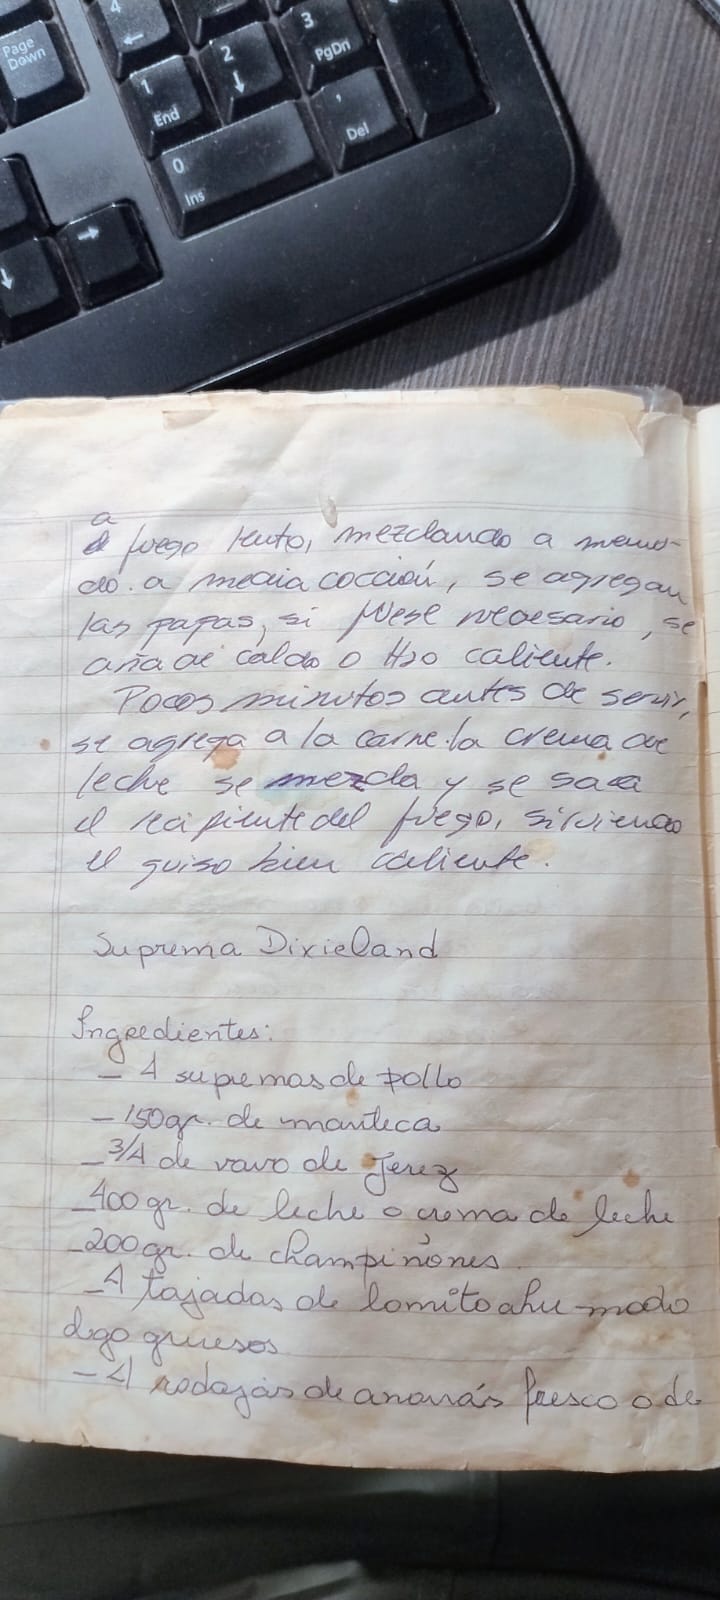 Page
Down
4
1
End
2
3
PgDn
0
Ins
,
Del
a
fuego lento, mezclando a menu-
do. a media cocción, se agregan
las papas, si fuese necesario, se
añade caldo o H2O caliente.
Pocos minutos antes de servir,
se agrega a la carne.la crema de
leche se mezcla y se saca
el recipiente del fuego, sirviendo
el guiso bien caliente.
Suprema Dixieland
Ingredientes:
- 4 supremas de pollo
- 150gr. de manteca
- 3/4 de vavo de Jerez
- 400 gr. de leche o crema de leche
- 200 gr. de champiñones
- 4 tajadas de lomito ahu-mado
algo gruesos
- 4 rodajas de ananás fresco o de